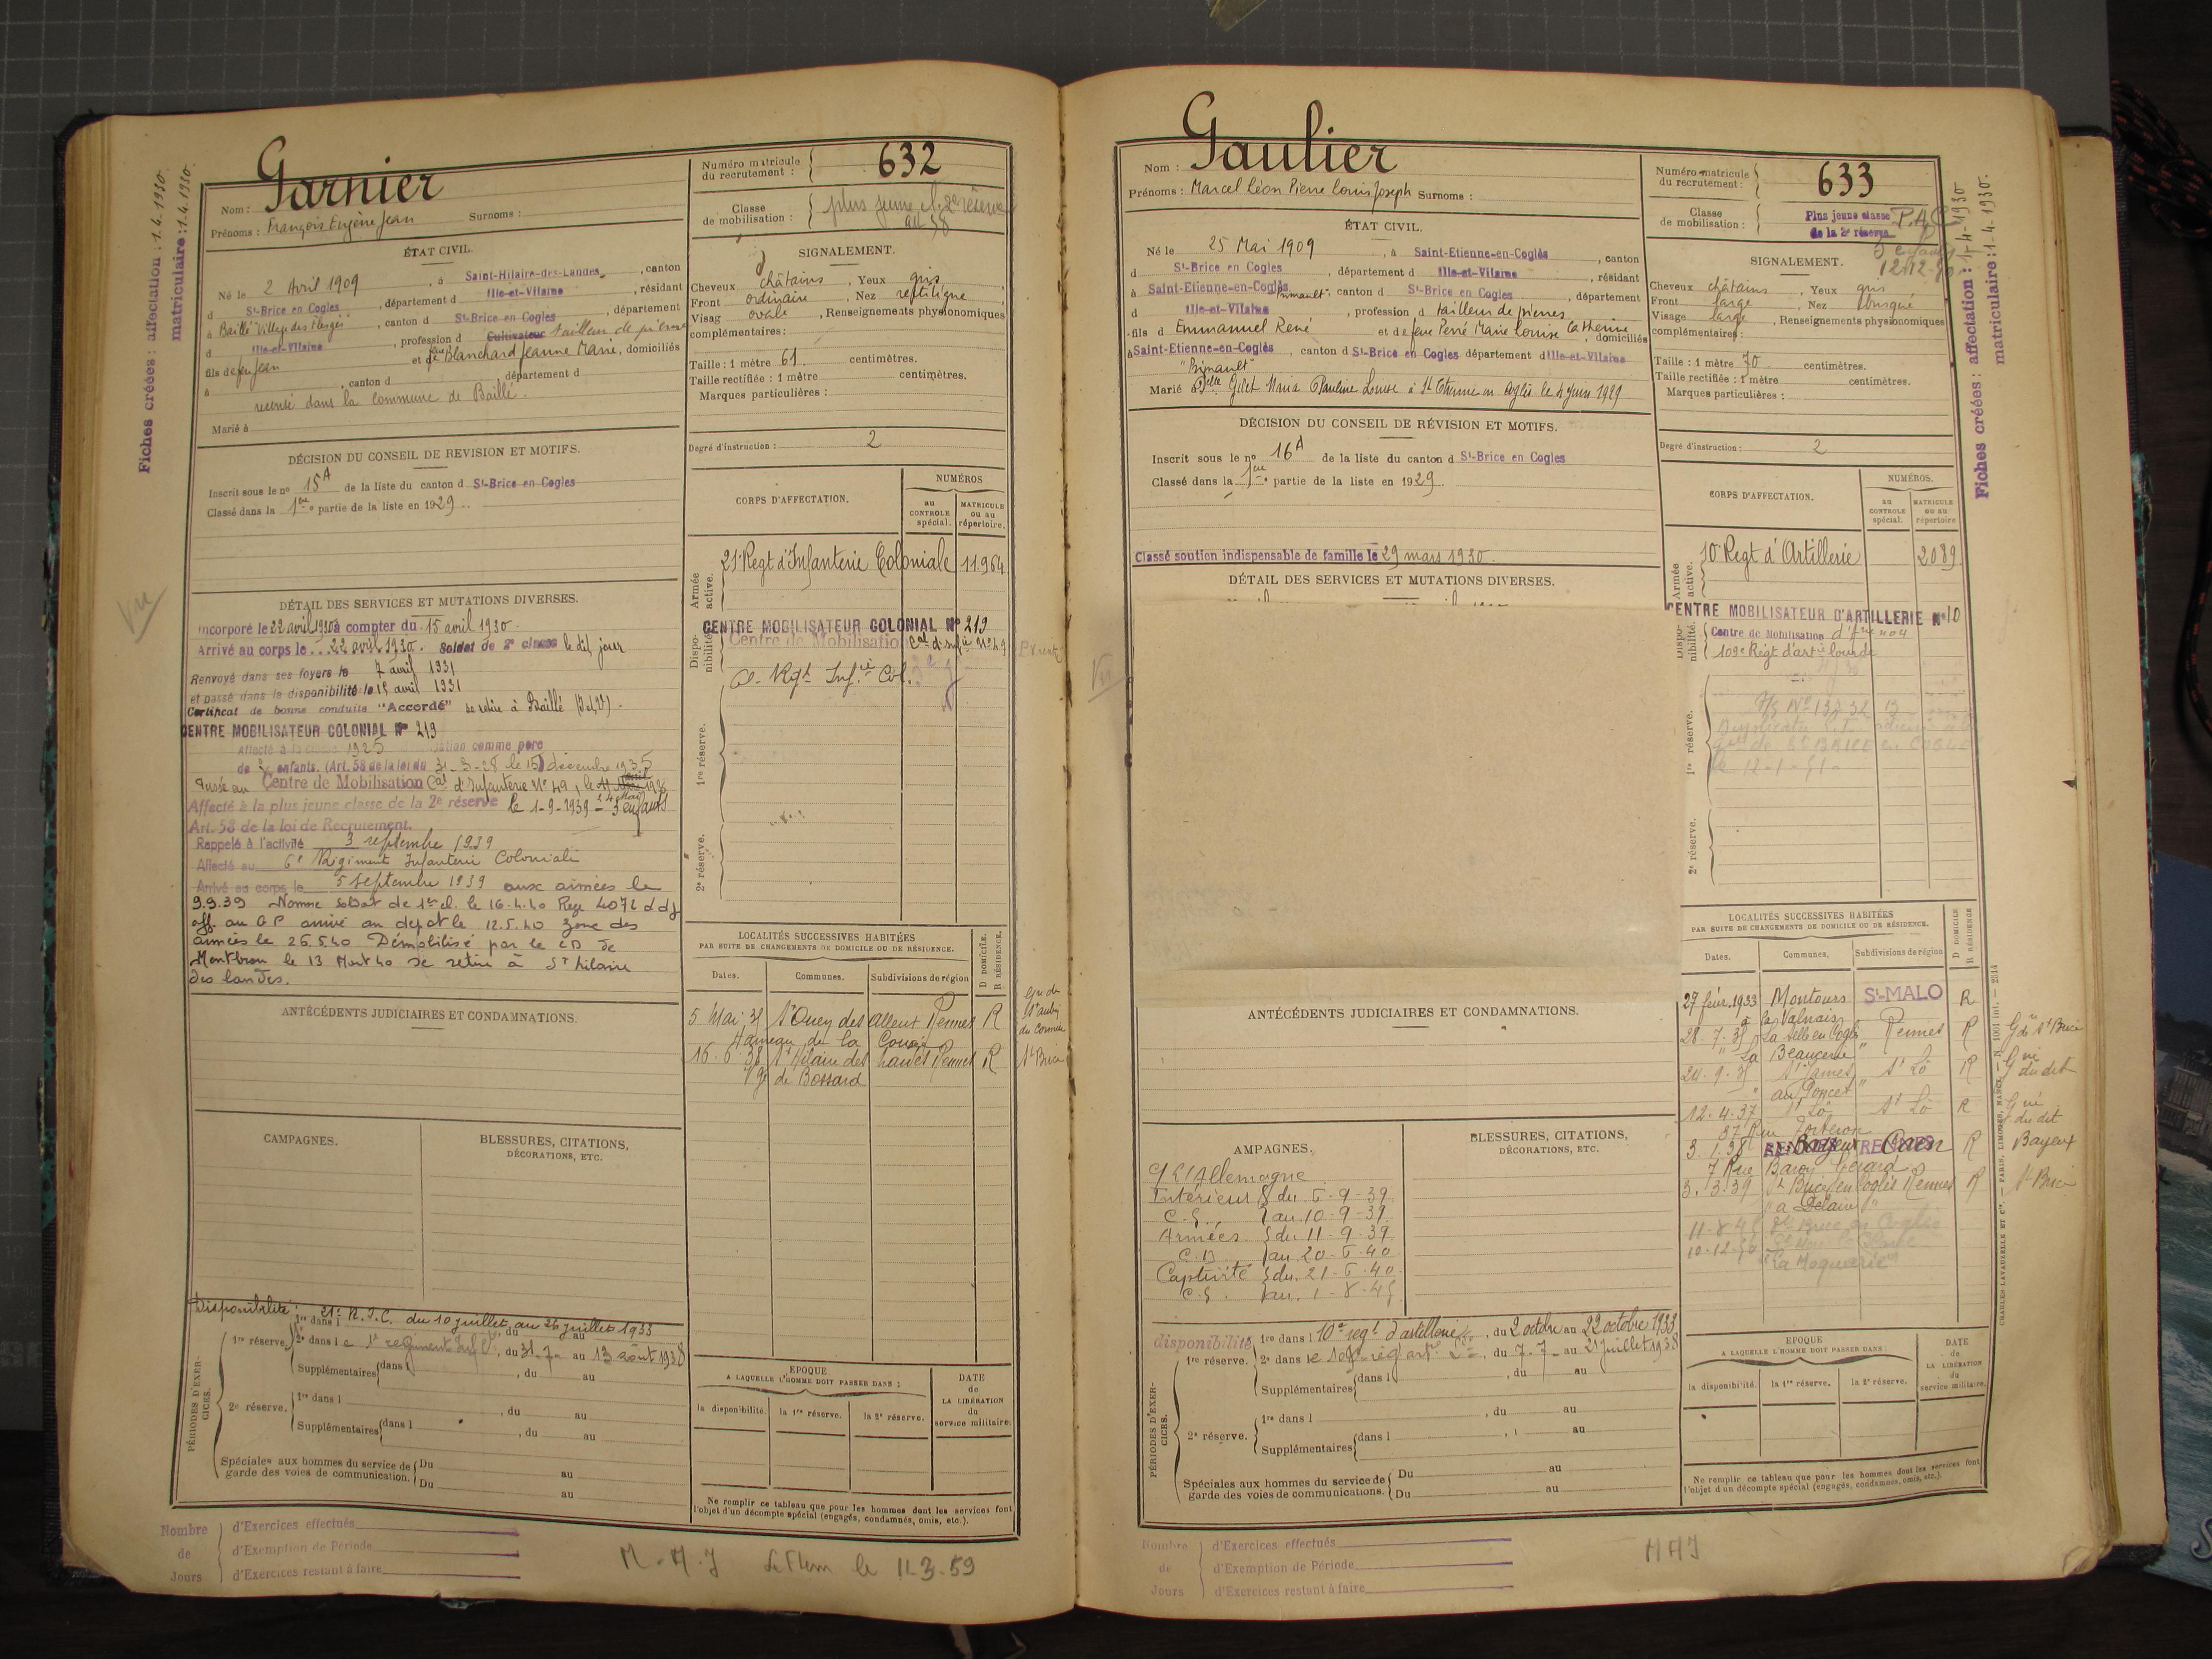 Fiches créées : affectation : 1.4.1930.
matriculaire : 1.4.1930.
Nom : Garnier
Prénoms : François Eugène Jean Surnoms :
Numéro matricule
du recrutement : 632
Classe
de mobilisation : plus jeune cl. 2e réserve
ÉTAT CIVIL.
Né le 2 Avril 1909, à Saint-Hilaire-des-Landes, canton
d St-Brice en Cogles, département d Ille-et-Vilaine, résidant
à Baillé Village des, canton d St-Brice en Cogles, département
d Ille-et-Vilaine, profession d Cultivateur tailleur de pierres
fils de feu Jean et de feue Blanchard Jeanne Marie, domiciliés
à , canton d département d
recensé dans la commune de Baillé.
Marié à
SIGNALEMENT.
Cheveux châtains, Yeux gris,
Front ordinaire, Nez rectiligne,
Visag ovale, Renseignements physionomiques
complémentaires :
Taille : 1 mètre 61 centimètres.
Taille rectifiée : 1 mètre centimètres.
Marques particulières :
Degré d'instruction : 2
DÉCISION DU CONSEIL DE REVISION ET MOTIFS.
Inscrit sous le no 15A de la liste du canton d St-Brice en Cogles
Classé dans la 1re partie de la liste en 1929.
CORPS D'AFFECTATION.
NUMÉROS
au
CONTROLE
spécial.
MATRICULE
ou au
répertoire.
Armée
active.
21e Regt d'Infanterie Coloniale 11.964
Vu
DÉTAIL DES SERVICES ET MUTATIONS DIVERSES.
Incorporé le 22 avril 1930 à compter du 15 avril 1930.
Arrivé au corps le 22 avril 1930. Soldat de 2e classe le dit jour
Renvoyé dans ses foyers le 7 avril 1931
et passé dans la disponibilité le 15 avril 1931
Certificat de bonne conduite "Accordé" se retire à Baillé (I et V).
CENTRE MOBILISATEUR COLONIAL No 219
Affecté à la classe 1925 comme père
de 2 enfants. (Art. 58 de la loi du 31-3-28 le 15 décembre 1935
Passé au Centre de Mobilisation Cal d'Infanterie No 49, le
Affecté à la plus jeune classe de la 2e réserve le 1-9-1939 - 3 enfants
Art. 58 de la loi de Recrutement.
Rappelé à l'activité 3 septembre 1939
Affecté au 6e Régiment Infanterie Coloniale
Arrivé au corps le 5 septembre 1939 aux armées le
9.9.39 Nommé soldat de 1re cl. le 16.4.40
aff. au arrivé au depot le 12.5.40 zone des
armées le 26.5.40 Démobilisé par le CD de
Montbron le 13 Aout 40 se retire à St hilaire
des landes.
Disponibilité.
CENTRE MOBILISATEUR COLONIAL No 219
Centre de Mobilisation Cal d'Infie No 49
Regt Infie Col.
1re réserve.
2e réserve.
LOCALITÉS SUCCESSIVES HABITÉES
PAR SUITE DE CHANGEMENTS DE DOMICILE OU DE RÉSIDENCE.
D DOMICILE.
R RÉSIDENCE.
Dates. Communes. Subdivisions de région
5 Mai 31 St Ouen des Alleux Rennes R
Hameau de la
16.6.38 St Hilaire des Landes Rennes R St Brice
Vge de Bossard
ANTÉCÉDENTS JUDICIAIRES ET CONDAMNATIONS.
CAMPAGNES.
BLESSURES, CITATIONS,
DÉCORATIONS, ETC.
PÉRIODES D'EXERCICES.
Disponibilité : 1re dans l 21e R.I.C. du 10 juillet au 24 juillet 1933
1re réserve. 2e dans l régiment, du 31-7- au 13 août 1938
Supplémentaires dans l , du au
2e réserve. 1re dans l , du au
Supplémentaires dans l , du au
Spéciales aux hommes du service de
garde des voies de communication. Du au
Du au
EPOQUE
A LAQUELLE L'HOMME DOIT PASSER DANS :
la disponibilité. la 1re réserve. la 2e réserve.
DATE
de
LA LIBÉRATION
du
service militaire.
Ne remplir ce tableau que pour les hommes dont les services font
l'objet d'un décompte spécial (engagés, condamnés, omis, etc.).
Nombre
de
Jours
d'Exercices effectués
d'Exemption de Période
d'Exercices restant à faire
M.A.J le 11.3.59
Nom : Gaulier
Prénoms : Marcel Léon Pierre Louis Joseph Surnoms :
Numéro matricule
du recrutement : 633
Classe
de mobilisation : Plus jeune classe
de la 2e réserve
ÉTAT CIVIL.
Né le 25 Mai 1909, à Saint-Etienne-en-Coglès, canton
d St-Brice en Cogles, département d Ille-et-Vilaine, résidant
à Saint-Etienne-en-Coglès "Primault", canton d St-Brice en Cogles, département
d Ille-et-Vilaine, profession d tailleur de pierres
fils d Emmanuel René et de feue Perré Marie Louise Catherine, domiciliés
à Saint-Etienne-en-Coglès, canton d St-Brice en Cogles département d Ille-et-Vilaine
"Primault"
Marié à Delle Gilet Maria Pauline Louise à St Etienne en Coglès le 4 juin 1929
SIGNALEMENT.
Cheveux châtains, Yeux gris
Front large, Nez busqué
Visage large, Renseignements physionomiques
complémentaires :
Taille : 1 mètre 70 centimètres.
Taille rectifiée : 1 mètre centimètres.
Marques particulières :
Degré d'instruction : 2
Fiches créées : affectation : 1-4-1930
matriculaire : 1-4-1930.
DÉCISION DU CONSEIL DE RÉVISION ET MOTIFS.
Inscrit sous le no 16A de la liste du canton d St-Brice en Cogles
Classé dans la 1re partie de la liste en 1929.
Classé soutien indispensable de famille le 29 mars 1930.
DÉTAIL DES SERVICES ET MUTATIONS DIVERSES.
CORPS D'AFFECTATION.
NUMÉROS.
au
CONTROLE
spécial.
MATRICULE
ou au
répertoire
Armée
active.
10e Regt d'Artillerie 2089
Disponibilité.
CENTRE MOBILISATEUR D'ARTILLERIE No 10
Centre de Mobilisation
109e Régt d'artie lourde
1re réserve.
2e réserve.
LOCALITÉS SUCCESSIVES HABITÉES
PAR SUITE DE CHANGEMENTS DE DOMICILE OU DE RÉSIDENCE.
D DOMICILE
R RÉSIDENCE.
Dates. Communes. Subdivisions de région
27 févr. 1933 Montours St-MALO R
28.7.35 La Selle en Coglès Rennes R
24.9.35 St James St Lô R
12.4.37 St Lô St Lô R
3.1.38 Bayeux Caen R Bayeux
7 Rue Baron Gérard
3.3.39 St Brice en Coglès Rennes R St Brice
ANTÉCÉDENTS JUDICIAIRES ET CONDAMNATIONS.
AMPAGNES.
BLESSURES, CITATIONS,
DÉCORATIONS, ETC.
Allemagne
Intérieur du 6-9-39
C.S. au 10-9-39
Armées du 11-9-39
C.D au 20-6-40
Captivité du 21-6-40
C.S. au 1-8-45
PÉRIODES D'EXERCICES.
disponibilité 1re dans l 10e regt d'artillerie, du 2 octobre au 22 octobre 1933
1re réserve. 2e dans le, du 7-7- au 27 juillet 1938
Supplémentaires dans l , du au
2e réserve. 1re dans l , du au
Supplémentaires dans l au
Spéciales aux hommes du service de
garde des voies de communications. Du au
Du au
EPOQUE
A LAQUELLE L'HOMME DOIT PASSER DANS :
la disponibilité. la 1re réserve. la 2e réserve.
DATE
de
LA LIBÉRATION
du
service militaire.
Ne remplir ce tableau que pour les hommes dont les services font
l'objet d'un décompte spécial (engagés, condamnés, omis, etc.).
Nombre
de
Jours
d'Exercices effectués
d'Exemption de Période
d'Exercices restant à faire
MAJ